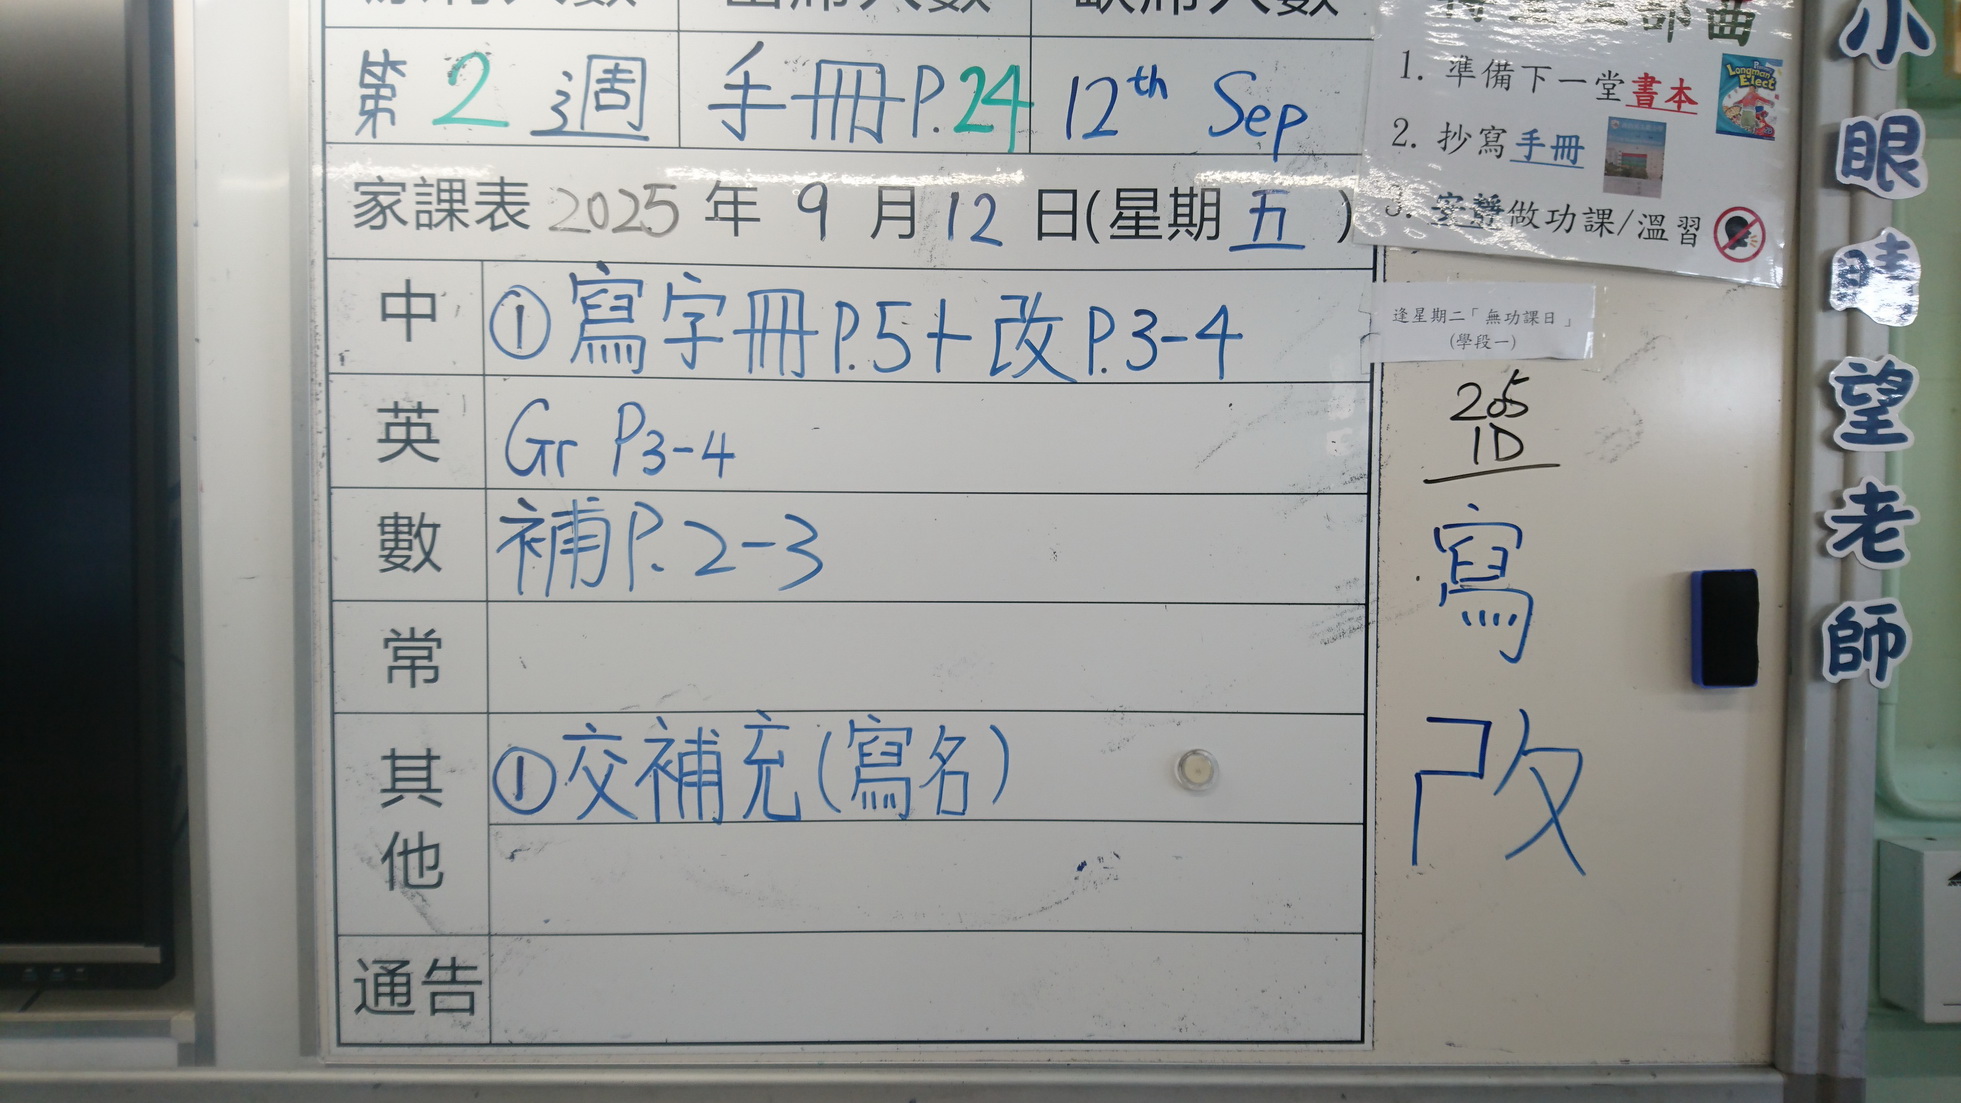 人數 出席人數 缺席人數
第2週 手冊P.24 12th Sep
家課表2025年9月12日(星期五)
中 ①寫字冊P.5+改P.3-4
英 Gr P3-4
數 補P.2-3
常
其他 ①交補充(寫名)
通告
部曲
1. 準備下一堂書本
Longman Elect
2. 抄寫手冊
3. 安靜做功課/溫習
逢星期二「無功課日」
(學段一)
205
1D
寫
改
小眼睛望老師